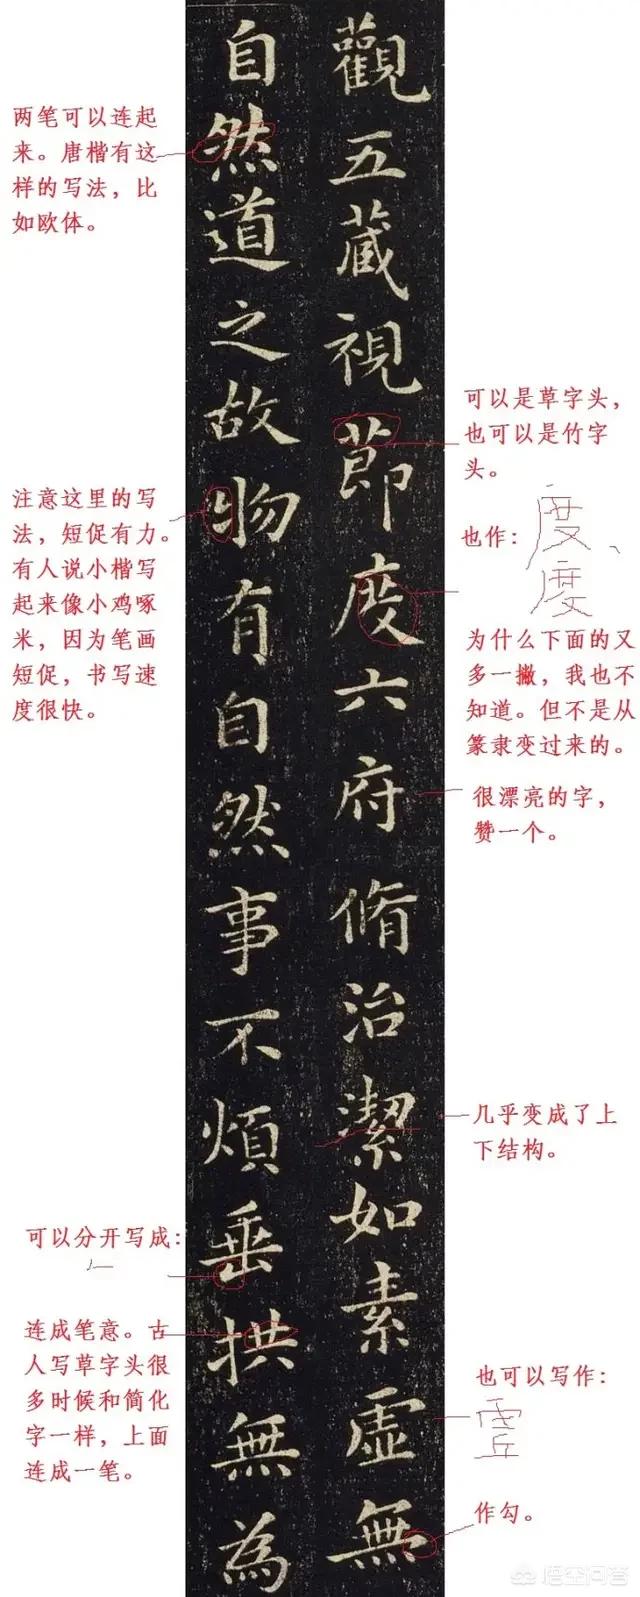 觀五藏視莭度六府脩治潔如素虛無
自然道之故物有自然事不煩垂拱無為
两笔可以连起
来。唐楷有这
样的写法，比
如欧体。
注意这里的写
法，短促有力。
有人说小楷写
起来像小鸡啄
米，因为笔画
短促，书写速
度很快。
可以分开写成：
连成笔意。古
人写草字头很
多时候和简化
字一样，上面
连成一笔。
可以是草字头，
也可以是竹字
头。
也作：
度
度
为什么下面的又
多一撇，我也不
知道。但不是从
篆隶变过来的。
很漂亮的字，
赞一个。
几乎变成了上
下结构。
也可以写作：
作勾。
悟空问答